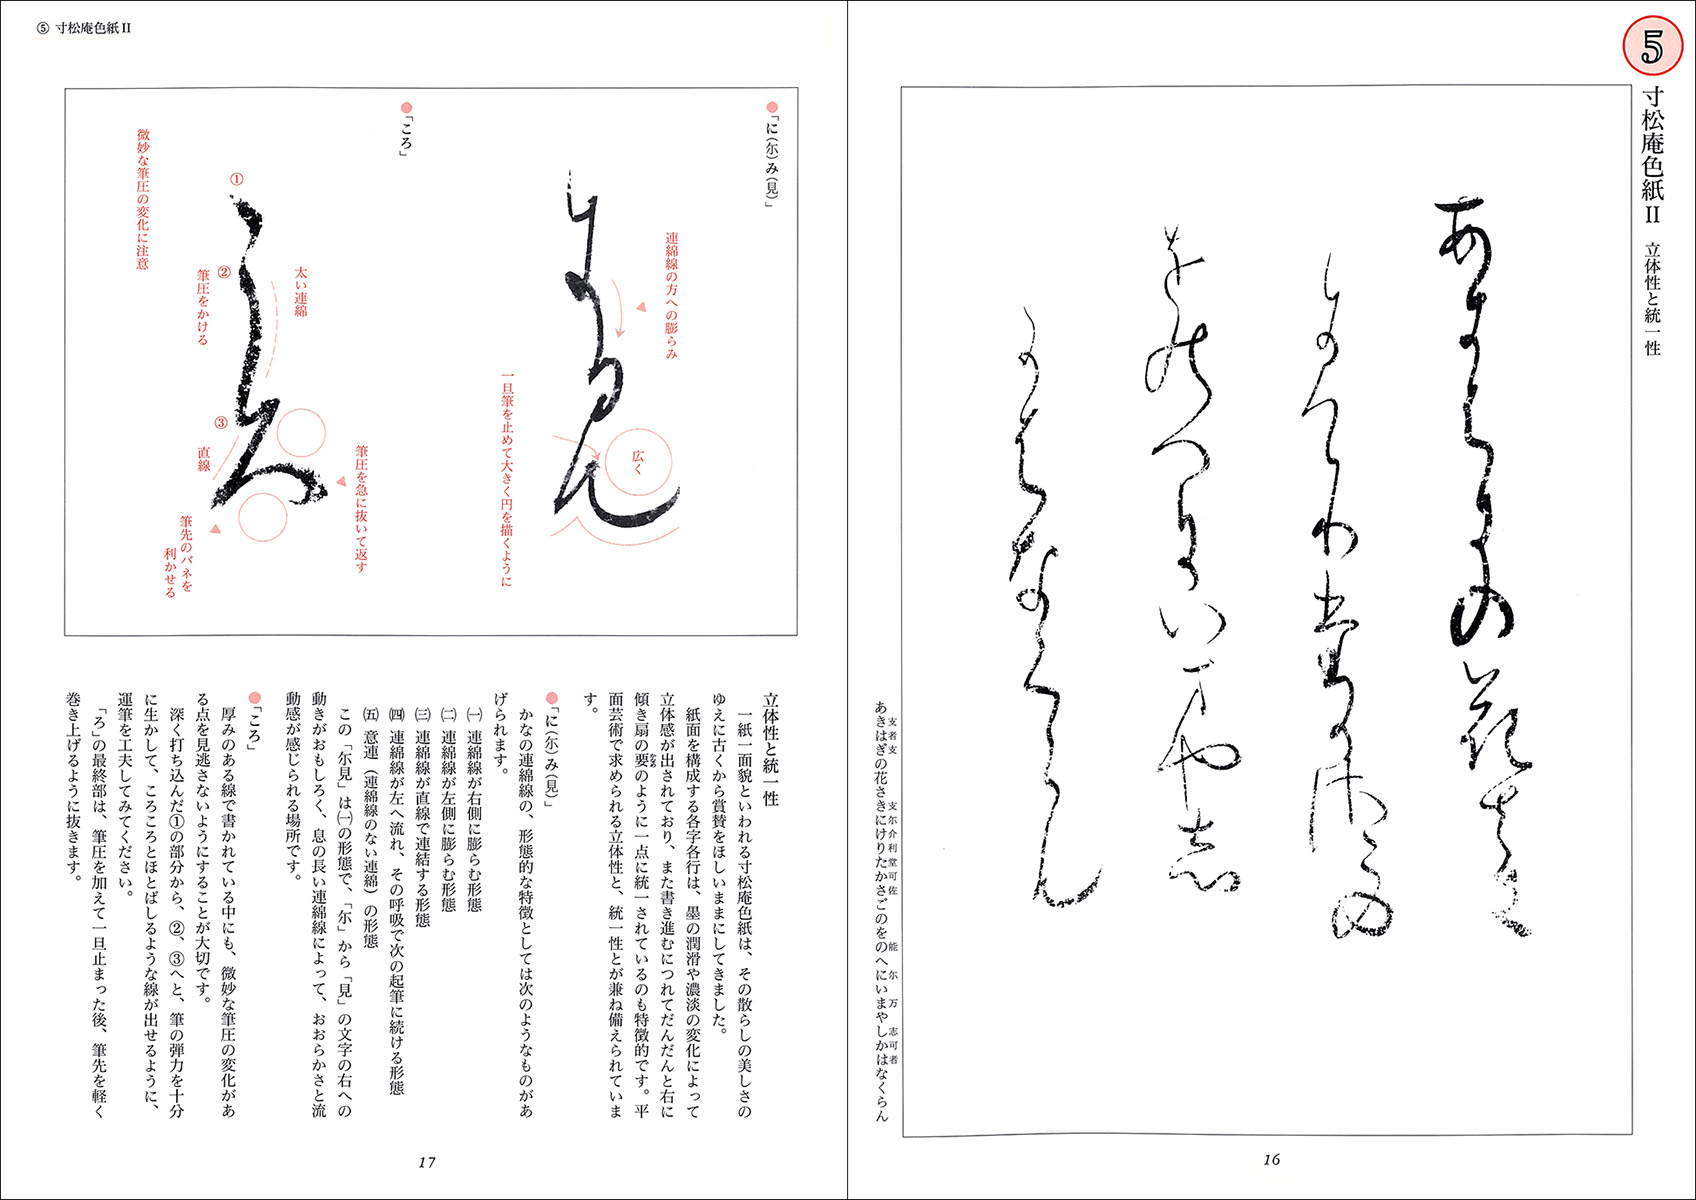 5
寸松庵色紙Ⅱ 立体性と統一性
あきはぎの花さきにけりたかさごのをのへにいまやしかはなくらん
支者支 支尓介利堂可佐 能 尓 万 志可者
16
⑤ 寸松庵色紙Ⅱ
●「に(尓)み(見)」
連綿線の方への膨らみ
広く
一旦筆を止めて大きく円を描くように
●「ころ」
筆圧を急に抜いて返す
太い連綿
①
②
③
筆圧をかける
直線
筆先のバネを
利かせる
微妙な筆圧の変化に注意
立体性と統一性
一紙一面貌といわれる寸松庵色紙は、その散らしの美しさの
ゆえに古くから賞賛をほしいままにしてきました。
紙面を構成する各字各行は、墨の潤滑や濃淡の変化によって
立体感が出されており、また書き進むにつれてだんだんと右に
傾き扇の要のように一点に統一されているのも特徴的です。平
面芸術で求められる立体性と、統一性とが兼ね備えられていま
す。
●「に(尓)み(見)」
かなの連綿線の、形態的な特徴としては次のようなものがあ
げられます。
㈠ 連綿線が右側に膨らむ形態
㈡ 連綿線が左側に膨らむ形態
㈢ 連綿線が直線で連結する形態
㈣ 連綿線が左へ流れ、その呼吸で次の起筆に続ける形態
㈤ 意連(連綿線のない連綿)の形態
この「尓見」は㈠の形態で、「尓」から「見」の文字の右への
動きがおもしろく、息の長い連綿線によって、おおらかさと流
動感が感じられる場所です。
●「ころ」
厚みのある線で書かれている中にも、微妙な筆圧の変化があ
る点を見逃さないようにすることが大切です。
深く打ち込んだ①の部分から、②、③へと、筆の弾力を十分
に生かして、ころころとほとばしるような線が出せるように、
運筆を工夫してみてください。
「ろ」の最終部は、筆圧を加えて一旦止まった後、筆先を軽く
巻き上げるように抜きます。
17